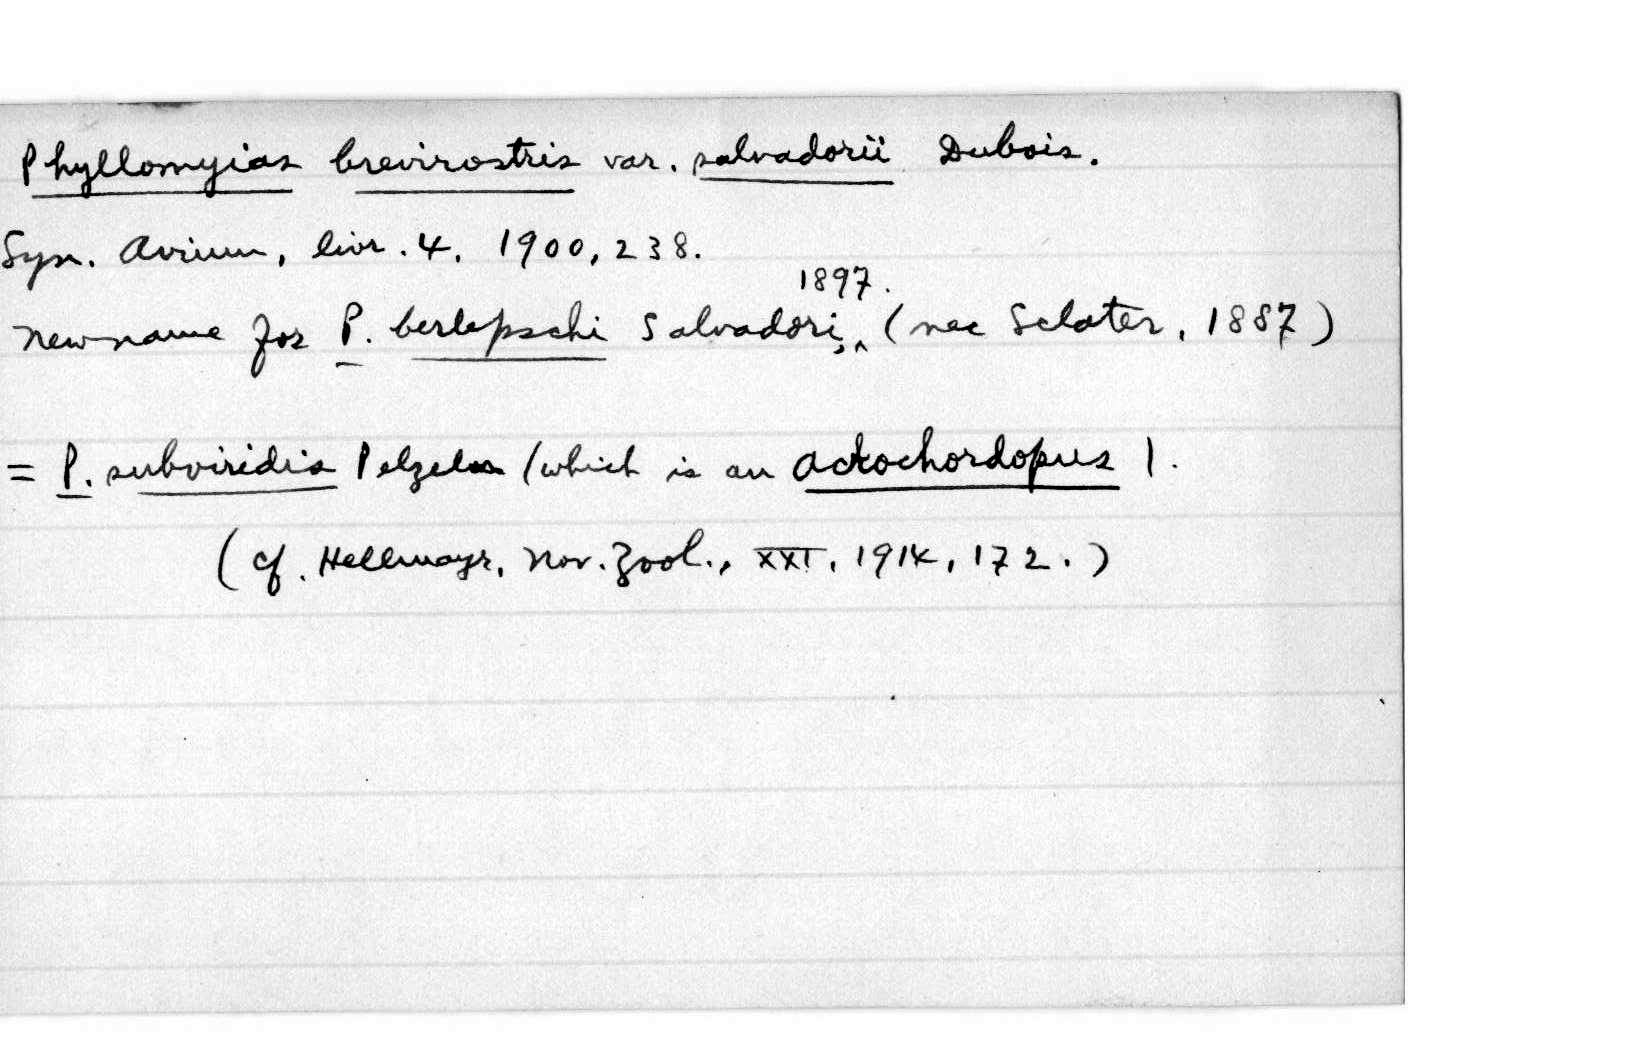 Phyllomyias brevirostris var. salvadorii Dubois.
Syn. Avium, livr. 4, 1900, 238.
1897.
New name for P. berlepschi Salvadori, (nec Sclater, 1887)
= P. subviridis Pelzeln (which is an Acrochordopus).
(cf. Hellmayr, Nov. Zool., XXI, 1914, 172.)